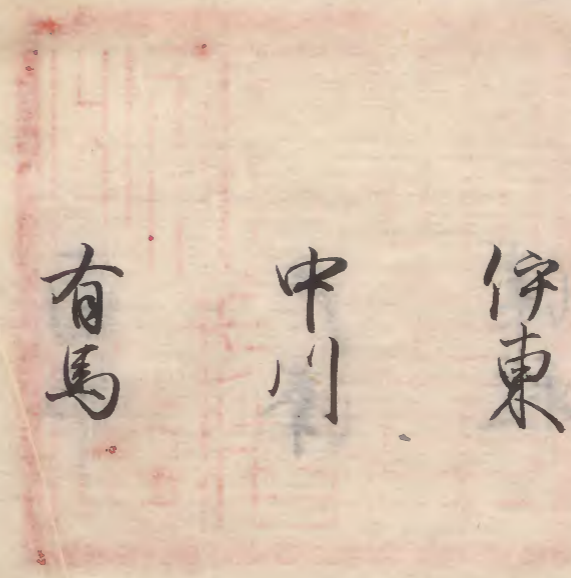 伊東
中川
有馬